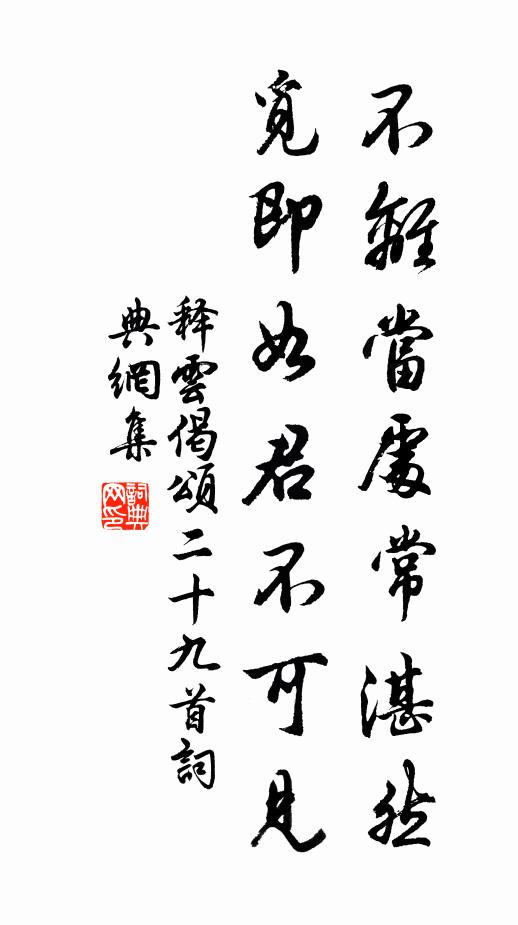 不離當處常湛然
覓即如君不可見
释雲偈頌二十九首詞
典網集
詞典
网印